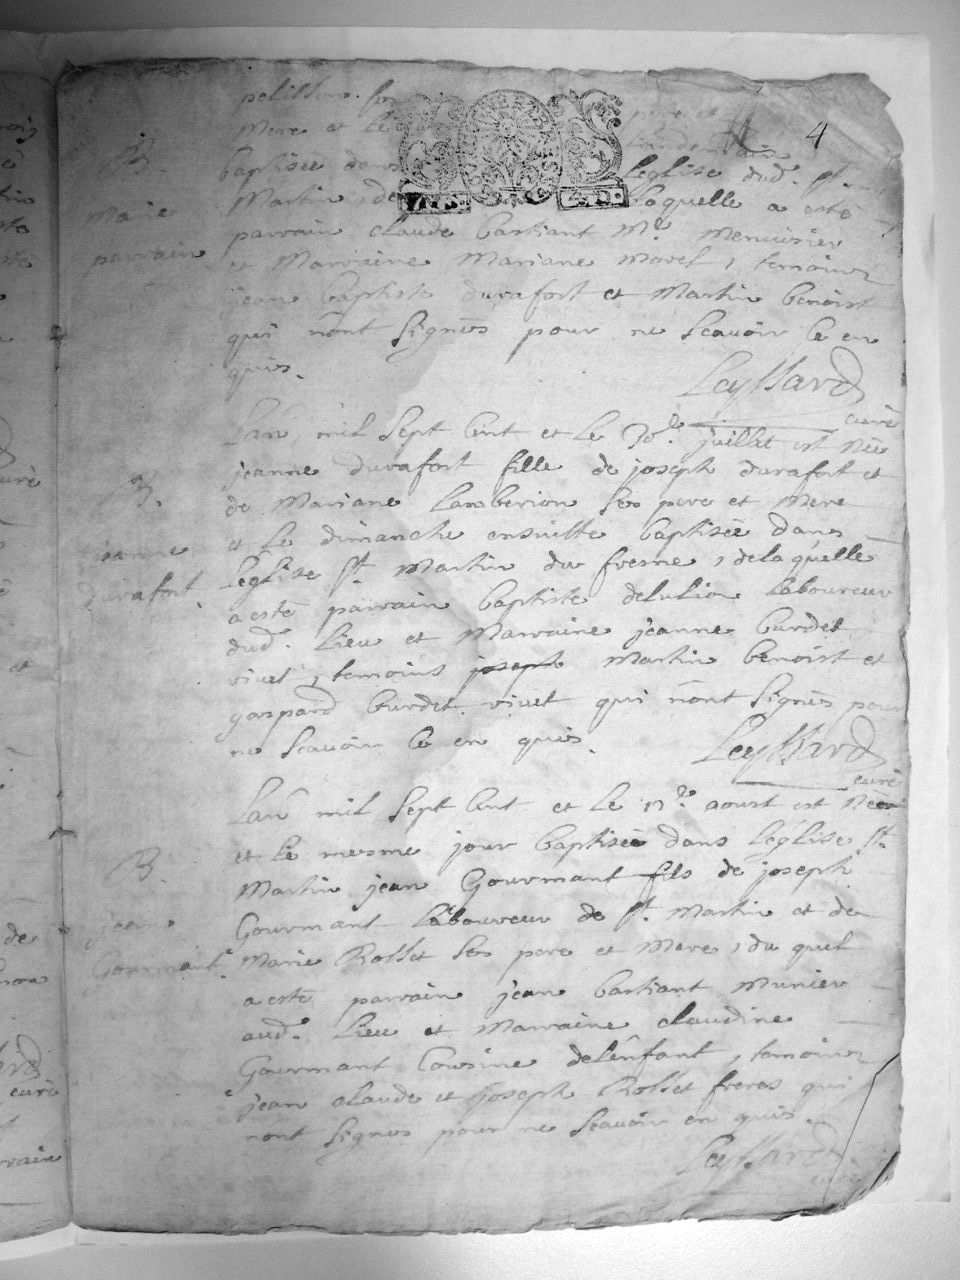 4
pere et
Mere et Le
B.
baptiseé dans Leglise dud. St.
Marie
Martin de Laquelle a esté
parrain
parrain claude bastiant Mr. Menuisier
et Marraine Mariane Morel, temoins
jean baptiste durafort et Martin benoist
qui n'ont signés pour ne scavoir ce en
quis.
Leyssard
curé
Lan mil sept cent et Le juillet est Née
jeanne durafort fille de joseph durafort et
B.
de Mariane Lamberion ses pere et Mere
et Le dimanche ensuitte baptiseé dans
jeanne
Leglise St. Martin du fresne, de laquelle
durafort
a esté parrain baptiste delulion Laboureur
dud. Lieu et Marraine jeanne burdet
vivet, temoins joseph Martin benoist et
gaspard burdet vivet qui n'ont signés pour
ne scavoir ce en quis.
Leyssard
curé
Lan mil sept cent et Le aoust est Née
et Le mesme jour baptiseé dans Leglise St.
B.
Martin jean Gourmant fils de joseph
jean
Gourmant Laboureur de St. Martin et de
Gourmant.
Marie Rosset ses pere et Mere, du quel
a esté parrain jean bastiant Munier
aud. Lieu et Marraine claudine
Gourmant Cousine de lenfant, temoins
jean claude et joseph Rosset freres qui
nont signes pour ne scavoir en quis.
Leyssard
curé